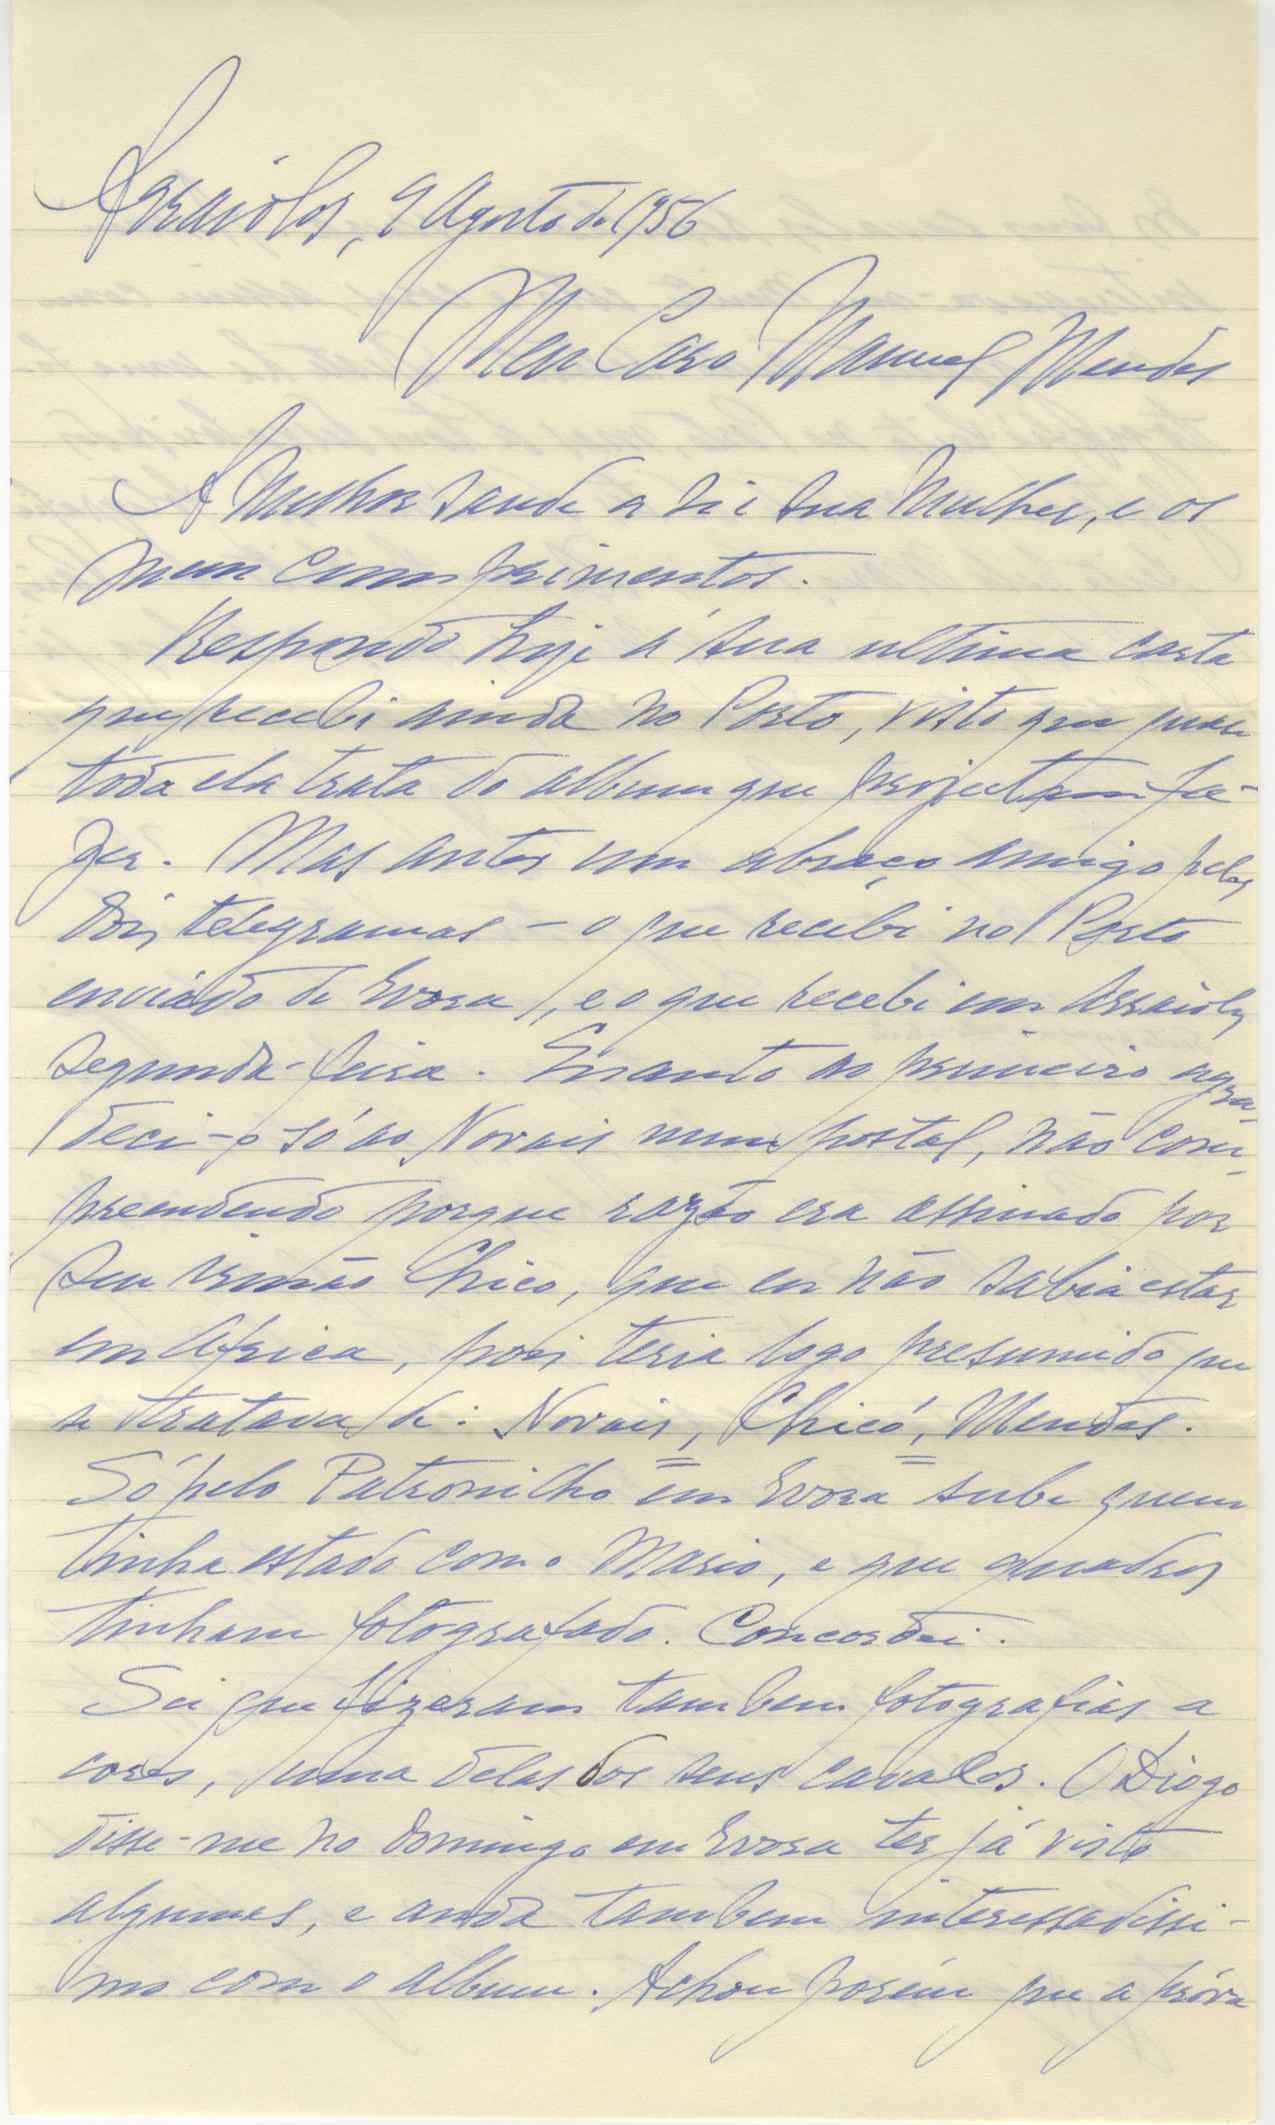 Arraiolos, 9 Agosto de 1956
Meu Caro Manuel Mendes
A melhor saude a si e sua Mulher, e os
meus comprimentos.
Respondo hoje á sua ultima carta
que recebi ainda no Porto, visto que quasi
toda ela trata do album que projectam fa-
zer. Mas antes um abraço amigo pelos
dois telegramas — o que recebi no Porto
enviado de Evora, e o que recebi em Arraiolos
segunda-feira. Enanto ao primeiro agra-
deci-o só ao Novais num postal, não com-
preendendo porque razão era assinado por
seu irmão Chico, que eu não sabia estar
em Africa, pois teria logo presumido que
se tratava de: Novais, Chicó, Mendes.
Só pelo Patronilho em Evora sube quem
tinha estado com o Mario, e que quadros
tinham fotografado. Concordei.
Sei que fizeram tambem fotografias a
cores, uma delas dos seus cavalos. O Diogo
disse-me no domingo em Evora ter já visto
algumas, e anda tambem interessadissi-
mo com o album. Achou porém que a próva